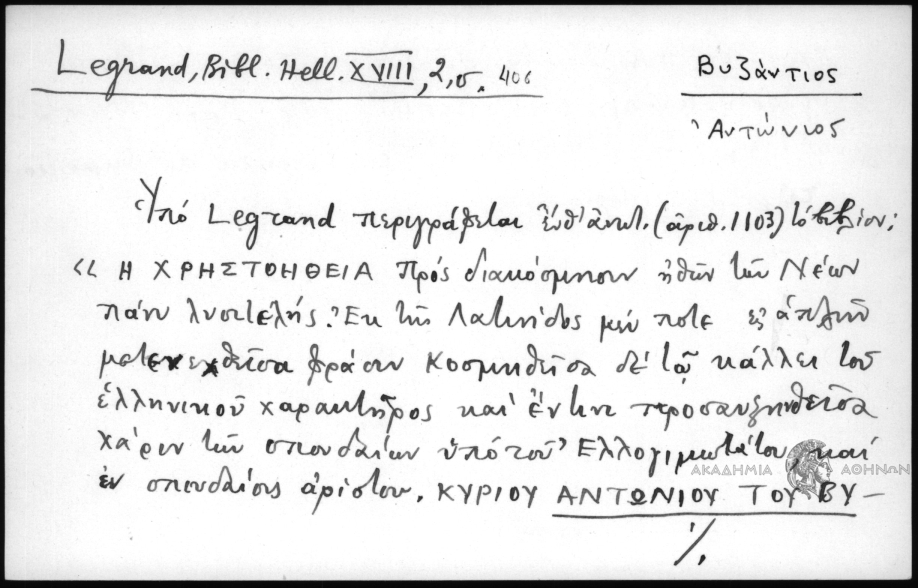 Legrand, Bibl. Hell. XVIII, 2, σ. 406
Βυζάντιος
Ἀντώνιος
Ὑπό Legrand περιγράφεται (ἀριθ. 1103) τό βιβλίον:
« Η ΧΡΗΣΤΟΗΘΕΙΑ πρός διακόσμησιν ἠθῶν τῶν Νέων
πάνυ λυσιτελής. Ἐκ τῆς Λατινίδος μέν ποτε εἰς ἁπλῆν
μετενεχθεῖσα φράσιν κοσμηθεῖσα δέ τῷ κάλλει τοῦ
ἑλληνικοῦ χαρακτῆρος καί ἔν τινι προσαυξηνθεῖσα
χάριν τῶν σπουδαίων ὑπό τοῦ Ἐλλογιμωτάτου, καί
ἐν σπουδαίοις ἀρίστου, ΚΥΡΙΟΥ ΑΝΤΩΝΙΟΥ ΤΟΥ ΒΥ-
./.
ΑΚΑΔΗΜΙΑ ΑΘΗΝΩΝ